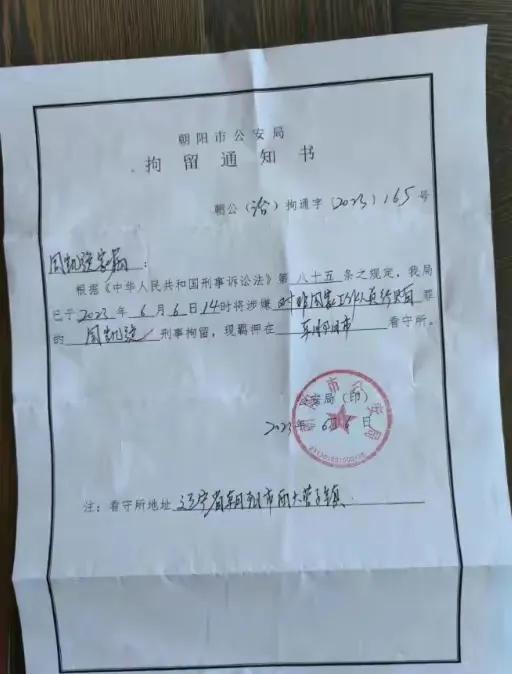 朝阳市公安局
拘留通知书
朝公(治)拘通字〔2023〕165号
周凯旋家属:
根据《中华人民共和国刑事诉讼法》第八十五条之规定,我局
已于2023年6月6日14时将涉嫌对非国家工作人员行贿罪
的周凯旋刑事拘留,现羁押在朝阳市看守所。
公安局(印)
2023年6月6日
注:看守所地址辽宁省朝阳市西大营子镇